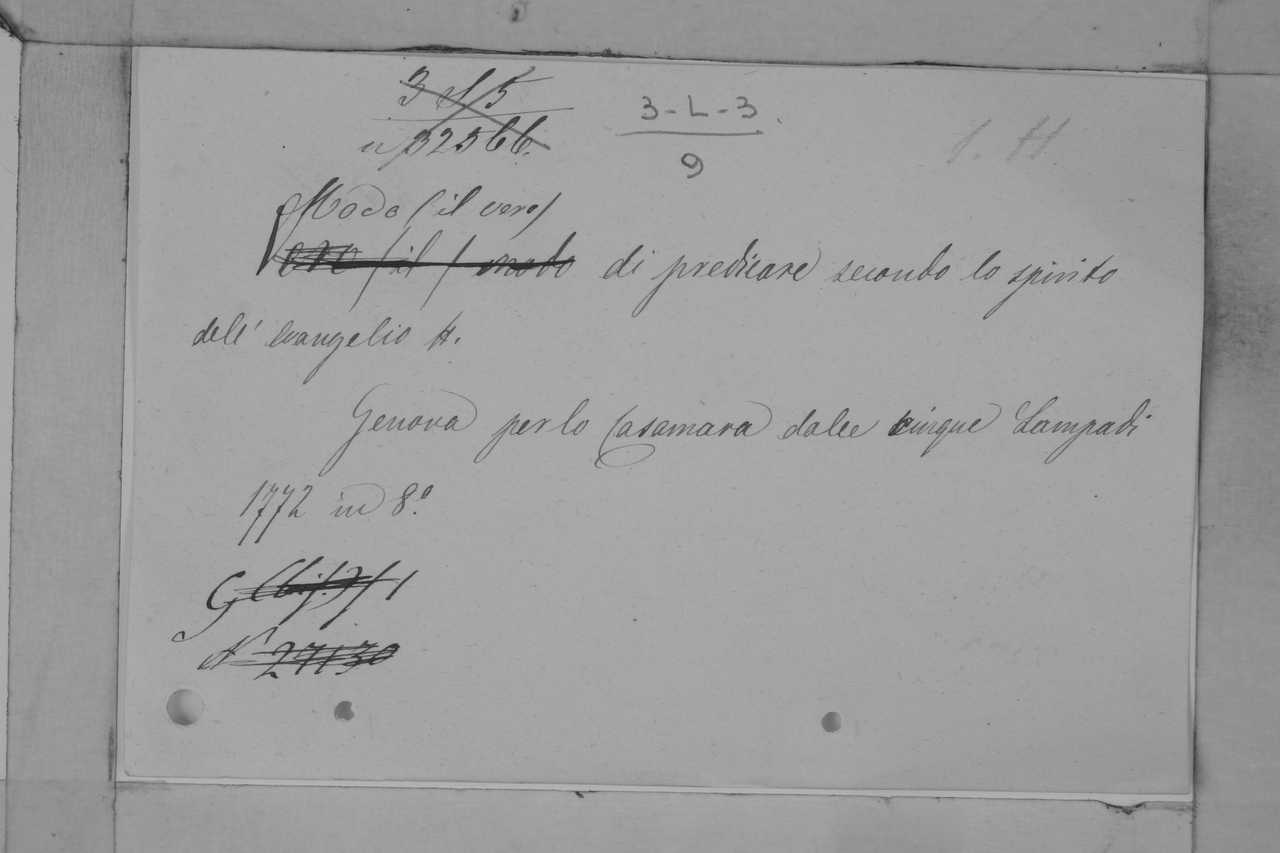 3-L-3
9
n 32566.
Modo (il vero)
(il) modo di predicare secondo lo spirito
dell' evangelio #.
Genova per lo Casamara dalle cinque Lampadi
1772 in 8.°
N 27130